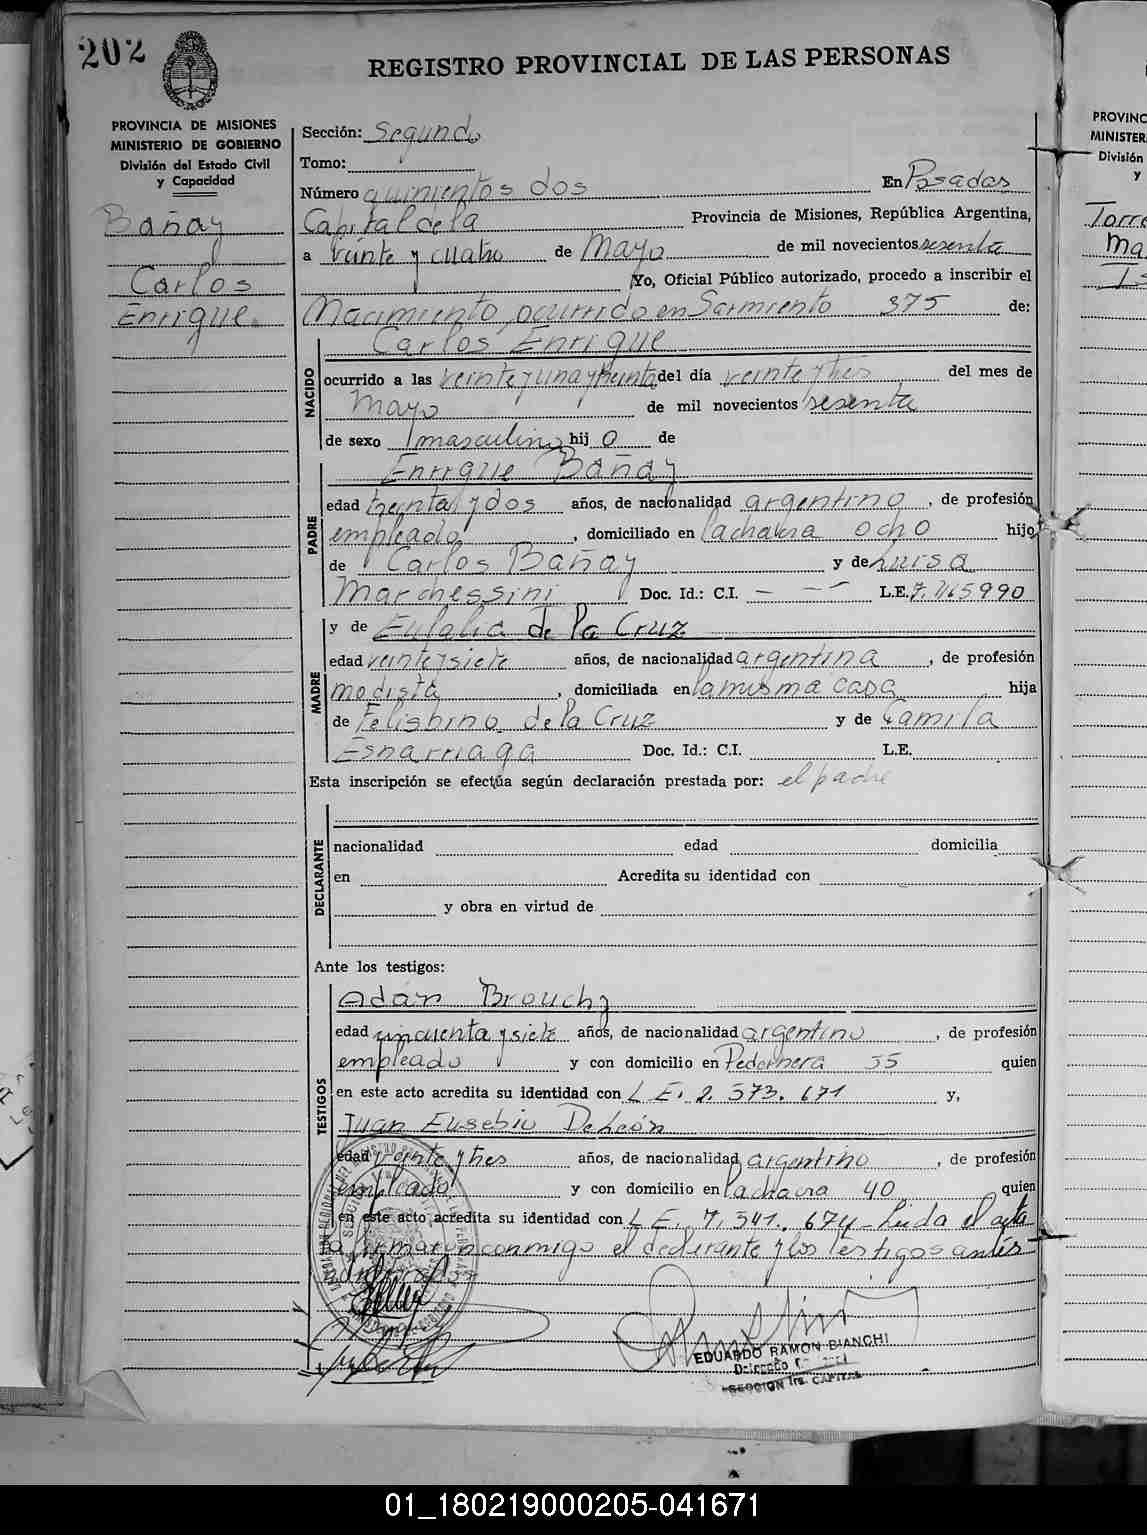 202
REGISTRO PROVINCIAL DE LAS PERSONAS
PROVINCIA DE MISIONES
MINISTERIO DE GOBIERNO
División del Estado Civil
y Capacidad
Bañay
Carlos
Enrique.
Sección: Segunda
Tomo:
Número quinientos dos En Posadas
Capital de la Provincia de Misiones, República Argentina,
a veinte y cuatro de Mayo de mil novecientos sesenta
Yo, Oficial Público autorizado, procedo a inscribir el
Nacimiento ocurrido en Sarmiento 375 de:
NACIDO
Carlos Enrique
ocurrido a las veinte y una y treinta del día veinte y tres del mes de
Mayo de mil novecientos sesenta
de sexo masculino hij o de
PADRE
Enrique Bañay
edad treinta y dos años, de nacionalidad argentino, de profesión
empleado, domiciliado en la chacra ocho hijo
de Carlos Bañay y de Luisa
Marchessini Doc. Id.: C.I. — — — L.E. 7.465990
MADRE
y de Eulalia de la Cruz
edad veinte y siete años, de nacionalidad argentina, de profesión
modista, domiciliada en la misma casa hija
de de la Cruz y de Camila
Esnarriaga Doc. Id.: C.I. L.E.
Esta inscripción se efectúa según declaración prestada por: el padre
DECLARANTE
nacionalidad edad domicilia
en Acredita su identidad con
y obra en virtud de
Ante los testigos:
TESTIGOS
Adán Brouchy
edad cincuenta y siete años, de nacionalidad argentino, de profesión
empleado y con domicilio en Pedernera 55 quien
en este acto acredita su identidad con L E. 2.573.671 y,
Juan Eusebio DeLeón
edad veinte y tres años, de nacionalidad argentino, de profesión
empleado y con domicilio en la chacra 40 quien
en este acto acredita su identidad con L E. 7.541.674 - Leida el acta
la firmaron conmigo el declarante y los testigos antes
EDUARDO RAMON BIANCHI
SECCION 1ra. CAPITAL
PROVINC
MINISTER
División
y
Torre
Ma
Is
01_180219000205-041671